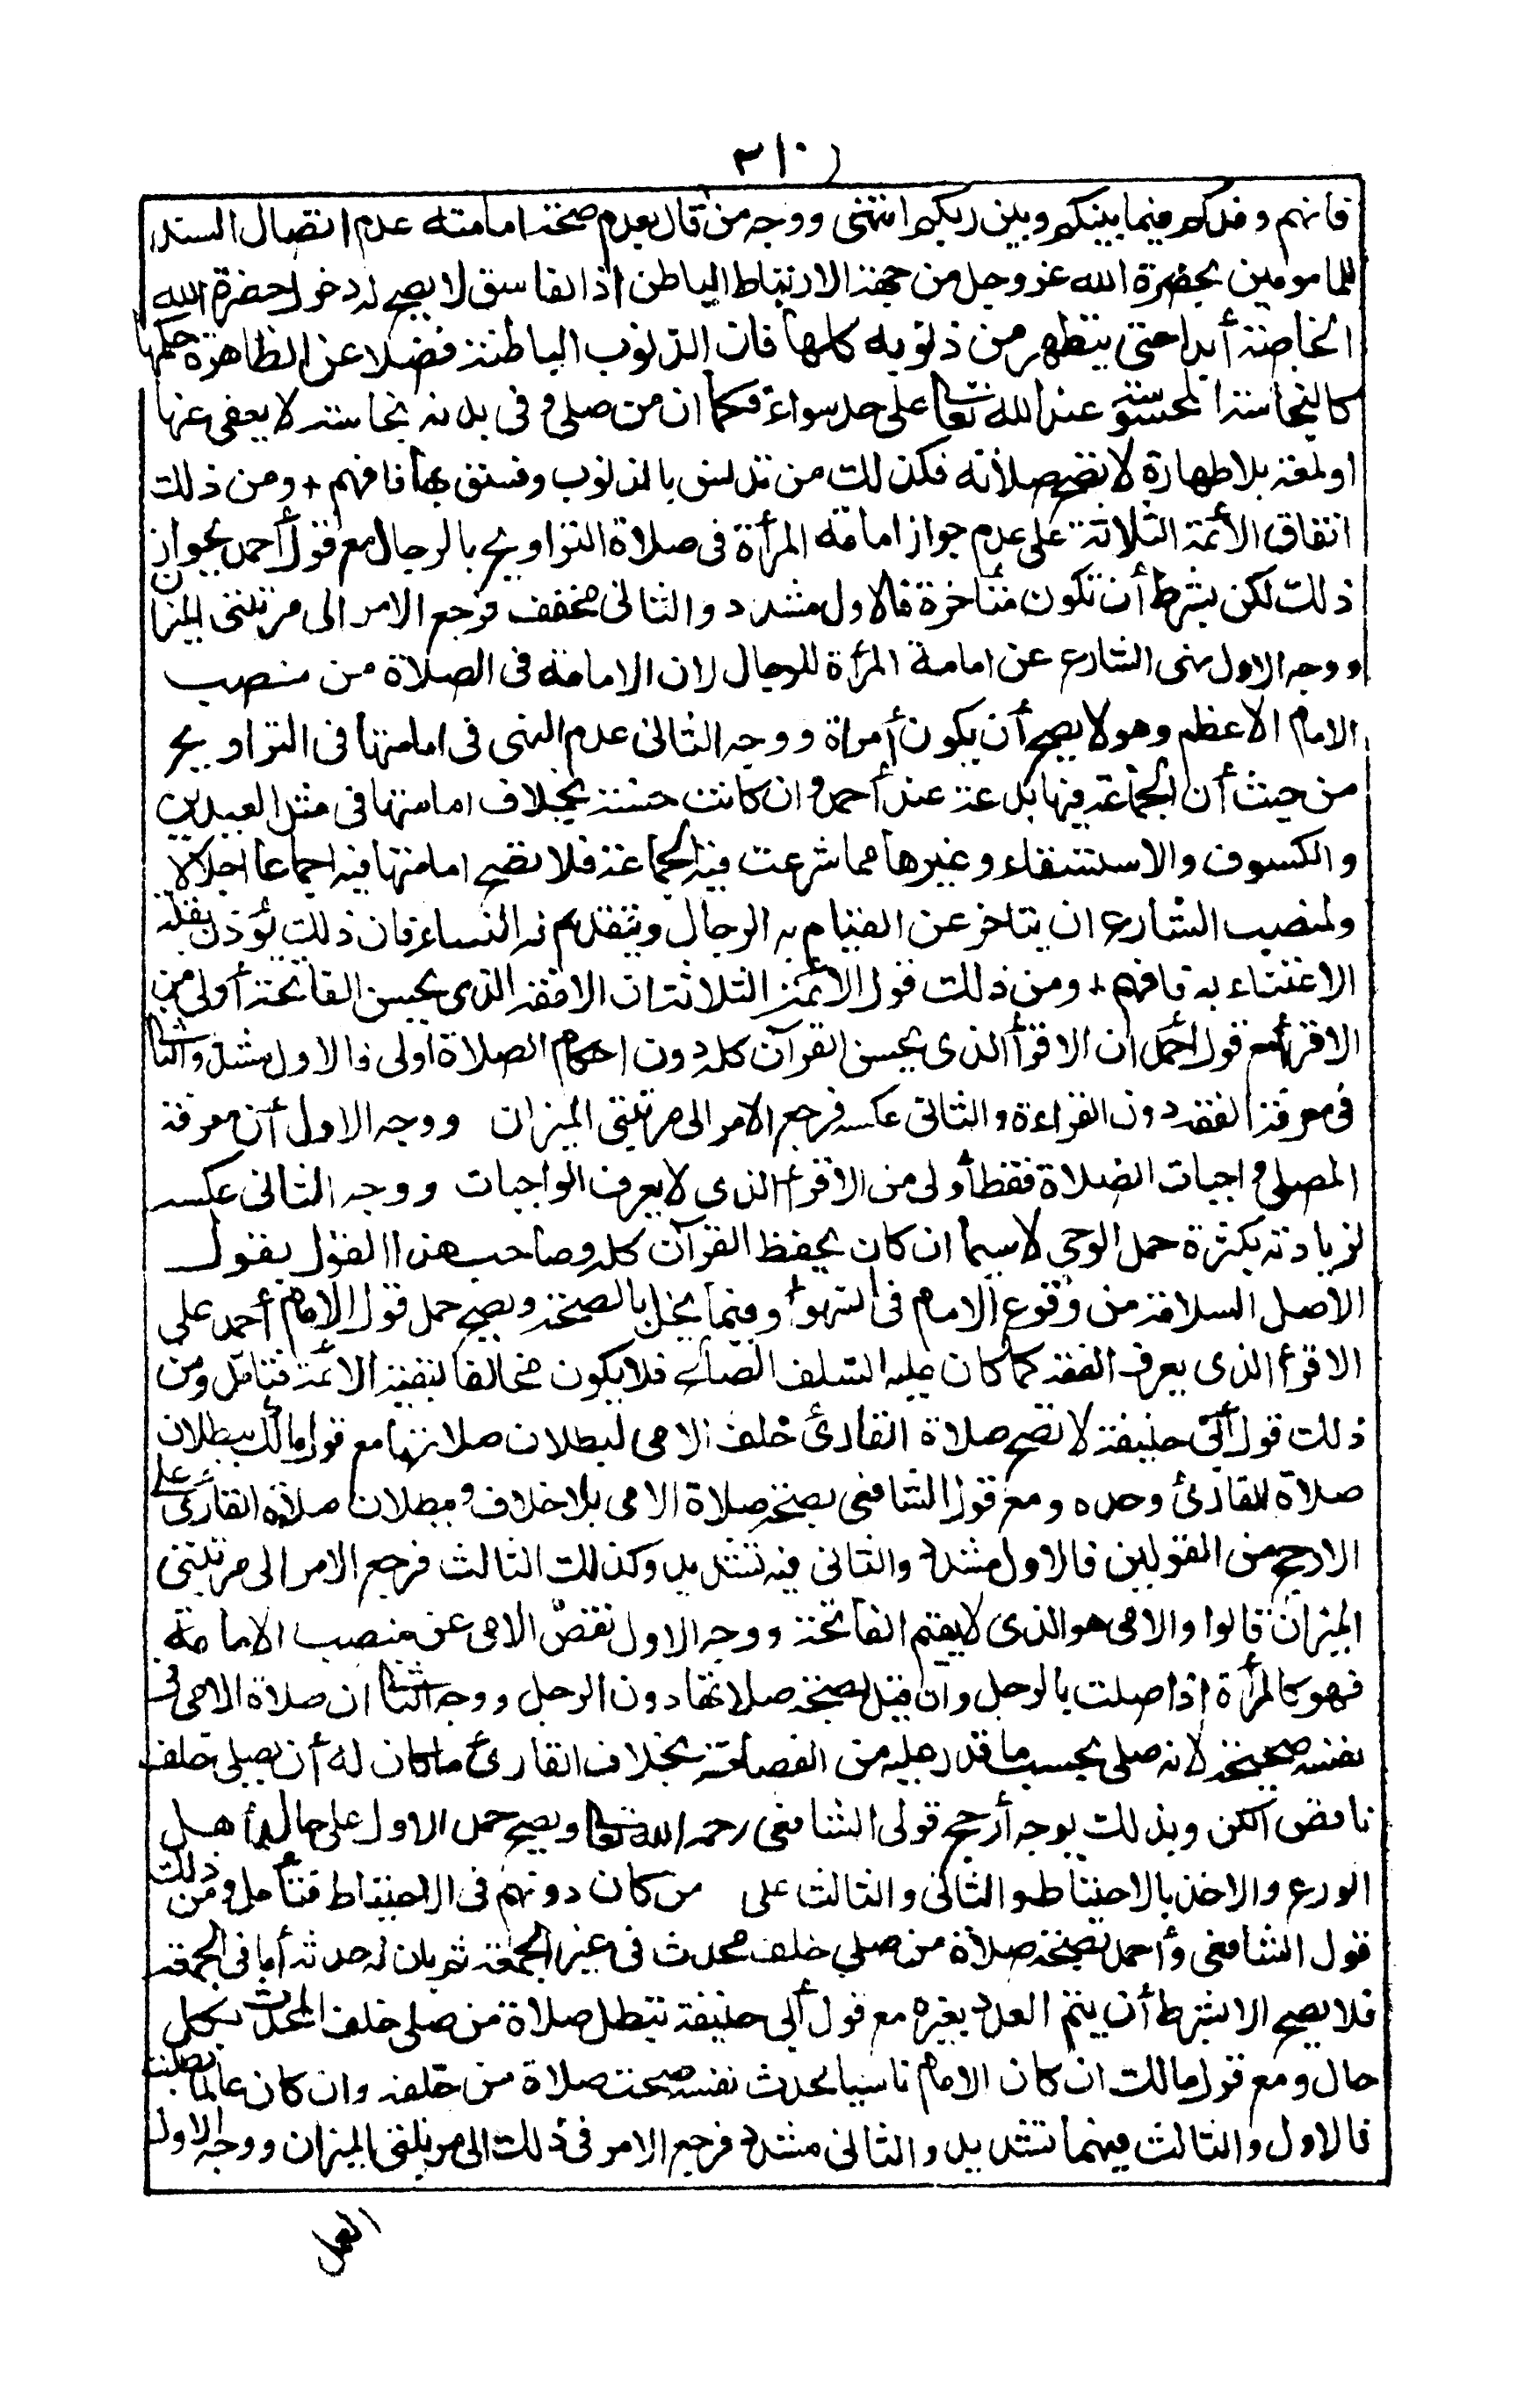 ٣١٠
فانهم وفدكم فيما بينكم وبين ربكم انتهى ووجه من قال بعدم صحة امامته عدم اتصال السند
للمامومين بحضرة الله عز وجل من جهة الارتباط الباطن اذ الفاسق لا يصح له دخول حضرة الله
الخاصة أبدا حتى يتطهر من ذنوبه كلها فان الذنوب الباطنة فضلا عن الظاهرة حكمها
كالنجاسة المحسوسة عند الله تعالى على حد سواء فكما ان من صلى وفى بدنه نجاسة لا يعفى عنها
اولمعة بلا طهارة لا تصح صلاته فكذلك من تدنس بالذنوب وفسق بها فافهم + ومن ذلك
اتفاق الأئمة الثلاثة على عدم جواز امامة المرأة فى صلاة التراويح بالرجال مع قول أحمد بجواز
ذلك لكن بشرط أن تكون متأخرة فالاول مشدد والثانى مخفف فرجع الامر الى مرتبتى الميزان
ووجه الاول نهى الشارع عن امامة المرأة للرجال لان الامامة فى الصلاة من منصب
الامام الاعظم وهو لا يصح أن يكون أمراة ووجه الثانى عدم النهى فى امامتها فى التراويح
من حيث أن الجماعة فيها بدعة عند أحمد وان كانت حسنة بخلاف امامتها فى مثل العيدين
والكسوف والاستسقاء وغيرها مما شرعت فيه الجماعة فلا تصح امامتها فيه اجماعا اجلالا
ولمنصب الشارع ان يتاخر عن القيام به الرجال ويتقدم له النساء فان ذلك يؤذن بقلة
الاعتناء به فافهم + ومن ذلك قول الأئمة الثلاثة ان الافقه الذى يحسن الفاتحة أولى من
الاقرأ مع قول أحمد ان الاقرأ الذى يحسن القرآن كله دون احكام الصلاة اولى فالاول مشدد والثانى
فى معرفة الفقه دون القراءة والثانى عكسه فرجع الامر الى مرتبتى الميزان ووجه الاول أن معرفة
المصلى واجبات الصلاة فقط أولى من الاقرأ الذى لا يعرف الواجبات ووجه الثانى عكسه
لزيادته بكثرة حمل الوحى لا سيما ان كان يحفظ القرآن كله وصاحب هذا القول يقول
الاصل السلامة من وقوع الامام فى السهو وفيما يخل بالصحة ويصح حمل قول الامام أحمد على
الاقرأ الذى يعرف الفقه كما كان عليه السلف الصالح فلا يكون مخالفا لبقية الأئمة فتأمل ومن
ذلك قول أبى حنيفة لا تصح صلاة القارئ خلف الامى لبطلان صلاتهما مع قول مالك ببطلان
صلاة القارئ وحده ومع قول الشافعى بصحة صلاة الامى بلا خلاف وبطلان صلاة القارئ على
الارجح من القولين فالاول مشدد والثانى فيه تشديد وكذلك الثالث فرجع الامر الى مرتبتى
الميزان قالوا والامى هو الذى لا يقيم الفاتحة ووجه الاول نقص الامى عن منصب الامامة
فهو كالمرأة اذا صلت بالرجل وان قيل بصحة صلاتها دون الرجل ووجه الثانى ان صلاة الامى فى
نفسه صحيحة لانه صلى بحسب ما قدر عليه من الفصاحة بخلاف القارئ ما كان له أن يصلى خلف
ناقص الكن وبذلك يوجه أرجح قولى الشافعى رحمه الله تعالى ويصح حمل الاول على حال أهل
الورع والاخذ بالاحتياط والثانى والثالث على من كان دونهم فى الاحتياط فتأمل ومن ذلك
قول الشافعى وأحمد بصحة صلاة من صلى خلف محدث فى غير الجمعة ثم بان له حدثه أما فى الجمعة
فلا يصح الا بشرط أن يتم العدد بغيره مع قول أبى حنيفة تبطل صلاة من صلى خلف المحدث بكل
حال ومع قول مالك ان كان الامام ناسيا لحدث نفسه صحت صلاة من خلفه وان كان عالما بطلت
فالاول والثالث فيهما تشديد والثانى مشدد فرجع الامر فى ذلك الى مرتبتى الميزان ووجه الاول
العمل